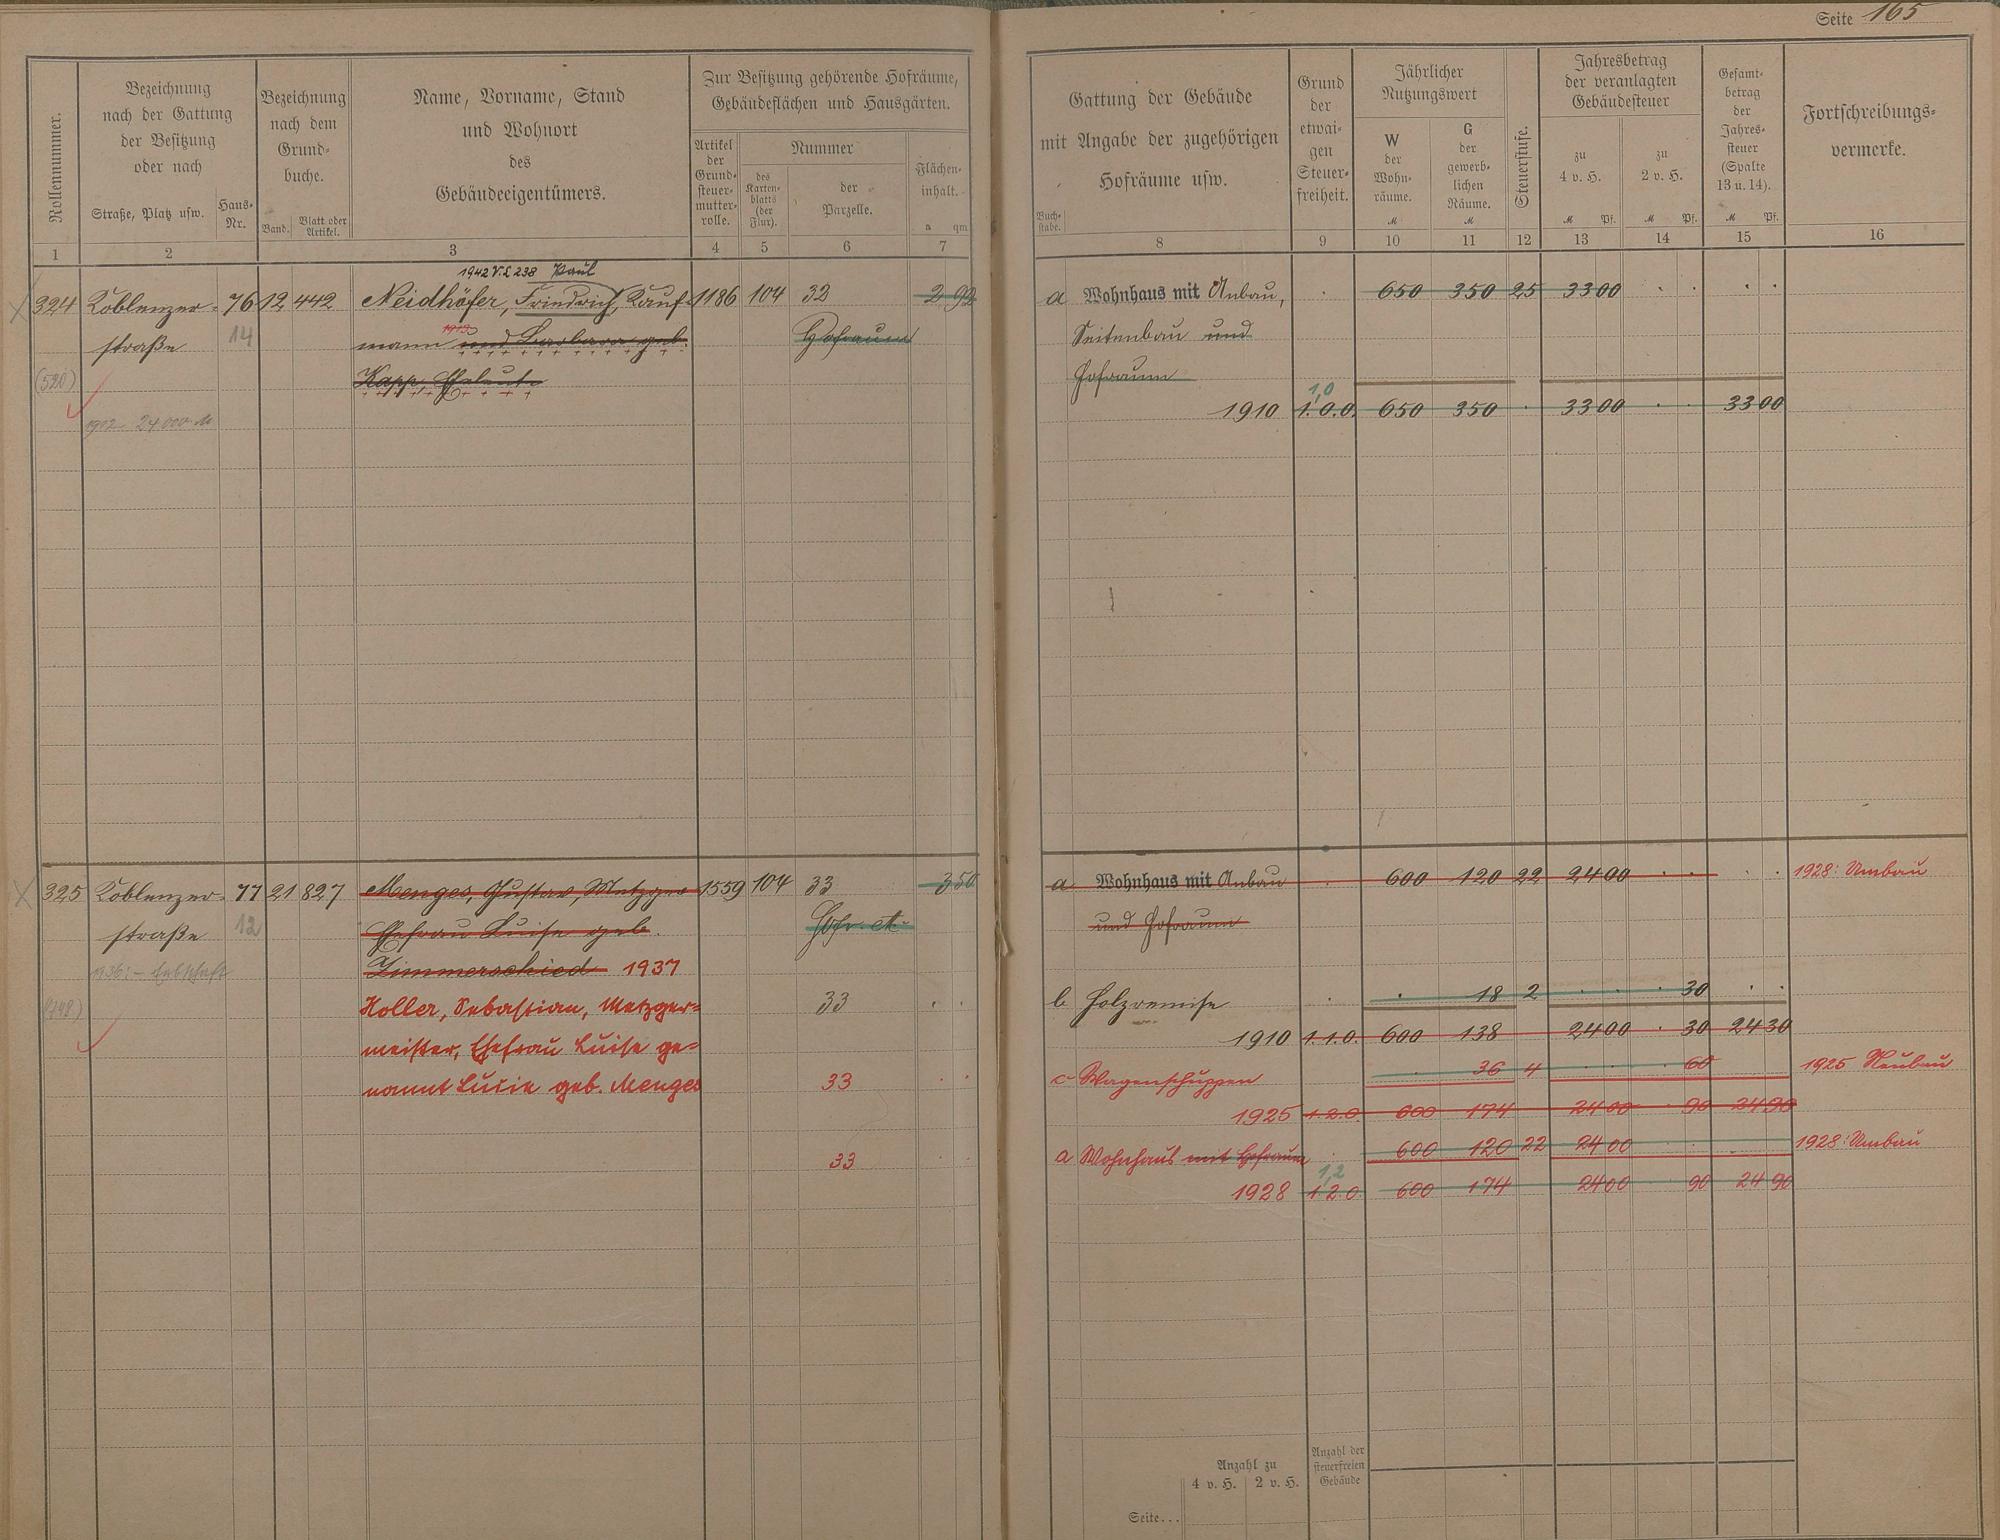 Seite 165
Rollennummer.
Bezeichnung
nach der Gattung
der Besitzung
oder nach
Straße, Platz usw.
Haus-
Nr.
Bezeichnung
nach dem
Grund-
buche.
Band.
Blatt oder
Artikel.
Name, Vorname, Stand
und Wohnort
des
Gebäudeeigentümers.
Zur Besitzung gehörende Hofräume,
Gebäudeflächen und Hausgärten.
Artikel
der
Grund-
steuer-
mutter-
rolle.
Nummer
des
Karten-
blatts
(der
Flur).
der
Parzelle.
Flächen-
inhalt.
a qm
Gattung der Gebäude
mit Angabe der zugehörigen
Hofräume usw.
Buch-
stabe.
Grund
der
etwai-
gen
Steuer-
freiheit.
Jährlicher
Nutzungswert
W
der
Wohn-
räume.
M
G
der
gewerb-
lichen
Räume.
M
Steuerstufe.
Jahresbetrag
der veranlagten
Gebäudesteuer
zu
4 v. H.
M Pf.
zu
2 v. H.
M Pf.
Gesamt-
betrag
der
Jahres-
steuer
(Spalte
13 u. 14).
M Pf.
Fortschreibungs-
vermerke.
1 2 3 4 5 6 7 8 9 10 11 12 13 14 15 16
1942 V.L 238 Paul
324 Koblenzer- 76 12 442 Neidhöfer, Friedrich, Kauf- 1186 104 32 2 92 a Wohnhaus mit Anbau, 650 350 25 33 00
straße 14 1913 mann und Barbara geb. Hofraum Seitenbau und
(520) Kapp, Eheleute Hofraum
1,0
1912 24000 M 1910 1.0.0. 650 350 33 00 33 00
325 Koblenzer- 77 21 827 Menges, Gustav, Metzger 1559 104 33 3 50 a Wohnhaus mit Anbau 600 120 22 24 00 1928: Umbau
straße 12 Ehefrau Luise geb. und Hofraum
1936: - Erbschaft Zimmerschied 1937
(748) Holler, Sebastian, Metzger- 33 b Holzremise 18 2 30
meister, Ehefrau Luise ge- 1910 1.1.0. 600 138 24 00 30 24 30
nannt Lucie geb. Menges 33 c Wagenschuppen 36 4 60 1925 Neubau
1925 1.2.0. 600 174 24 00 90 24 90
33 a Wohnhaus mit Hofraum 600 120 22 24 00 1928: Umbau
1,2
1928 1.2.0. 600 174 24 00 90 24 90
Anzahl zu
4 v. H. 2 v. H.
Anzahl der
steuerfreien
Gebäude
Seite...